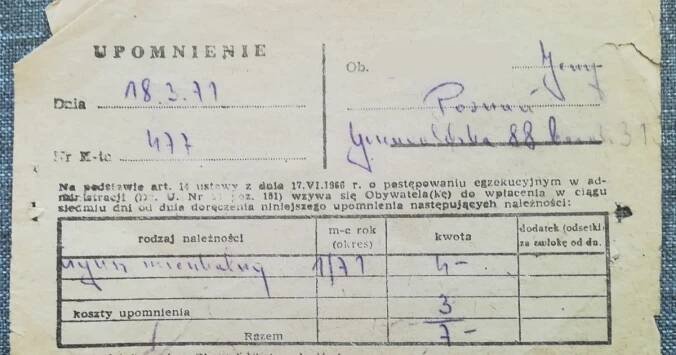 UPOMNIENIE
Ob. Jerzy
Dnia 18.3.71
Poznań
Nr K-to 477
88 31
Na podstawie art. 14 ustawy z dnia 17.VI.1966 r. o postępowaniu egzekucyjnym w ad-
ministracji (Dz. U. Nr poz. 151) wzywa się Obywatela(kę) do wpłacenia w ciągu
siedmiu dni od dnia doręczenia niniejszego upomnienia następujących należności:
rodzaj należności m-c rok (okres) kwota dodatek (odsetki) za zwłokę od dn.
1/71 4-
koszty upomnienia 3
Razem 7-